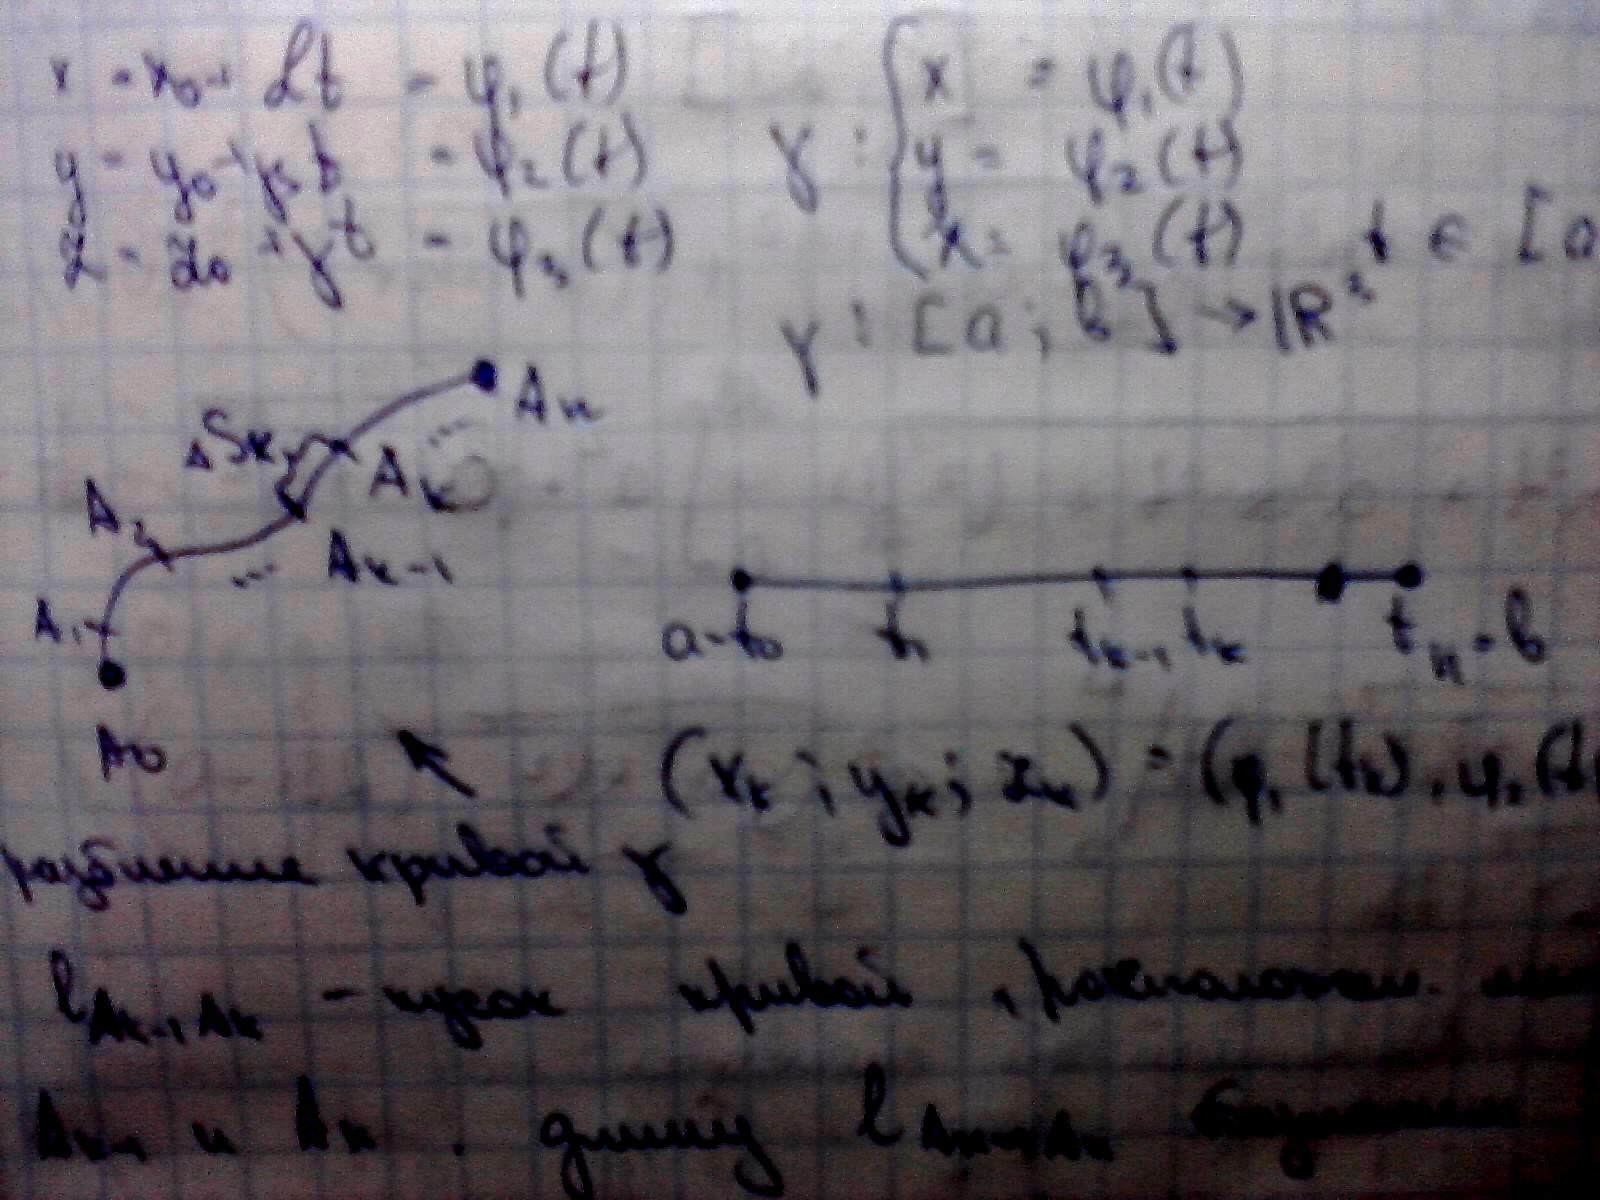 x = x₀ + αt = φ₁(t)
y = y₀ + βt = φ₂(t)
z = z₀ + γt = φ₃(t)
γ : { x = φ₁(t)
y = φ₂(t)
z = φ₃(t) t ∈ [a
γ : [a ; b] → ℝ³
Aₙ
ΔSₖ
Aₖ
...
A₂
Aₖ₋₁
...
A₁
A₀
a = t₀ t₁ tₖ₋₁ tₖ tₙ = b
(xₖ ; yₖ ; zₖ) = (φ₁(tₖ), φ₂(t
разбиение кривой γ
l Aₖ₋₁Aₖ – кусок кривой , расположен.
Aₖ₋₁ и Aₖ . длину l Aₖ₋₁Aₖ